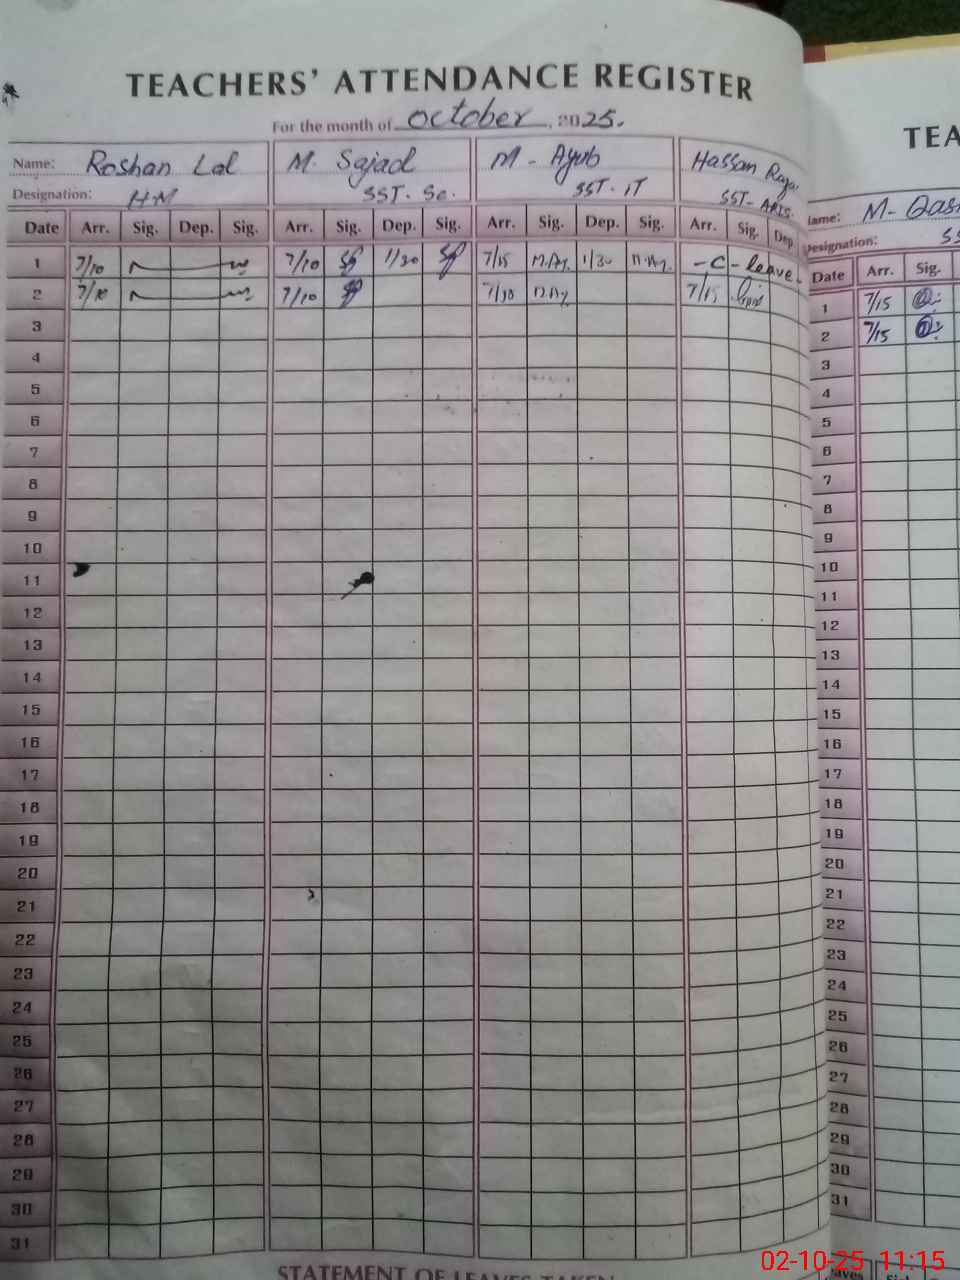 TEACHERS' ATTENDANCE REGISTER
For the month of October, 2025.
Name: Roshan Lal M. Sajad M - Ayub Hassan Raza
Designation: HM SST. Sc. SST. IT SST- ARTS.
Date Arr. Sig. Dep. Sig. Arr. Sig. Dep. Sig. Arr. Sig. Dep. Sig. Arr. Sig. Dep.
1 7/10 7/10 1/30 7/15 M.Ay. 1/30 M.Ay. -C-leave.
2 7/10 7/10 7/10 M.Ay 7/15
3
4
5
6
7
8
9
10
11
12
13
14
15
16
17
18
19
20
21
22
23
24
25
26
27
28
29
30
31
STATEMENT OF LEAVES TAKEN
TEA
Name: M-
Designation: SS
Date Arr. Sig.
1 7/15
2 7/15
3
4
5
6
7
8
9
10
11
12
13
14
15
16
17
18
19
20
21
22
23
24
25
26
27
28
29
30
31
02-10-25 11:15